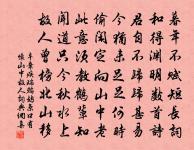 暮年不賦短長詞
和得淵明數首詩
君自不歸歸甚易
今猶未足足何時
偷閑定向山中老
此意須教鶴輩知
聞道只今秋水上
故人曾榜北山移
辛棄疾瑞鷓鴣京口有
懷山中故人詞典網